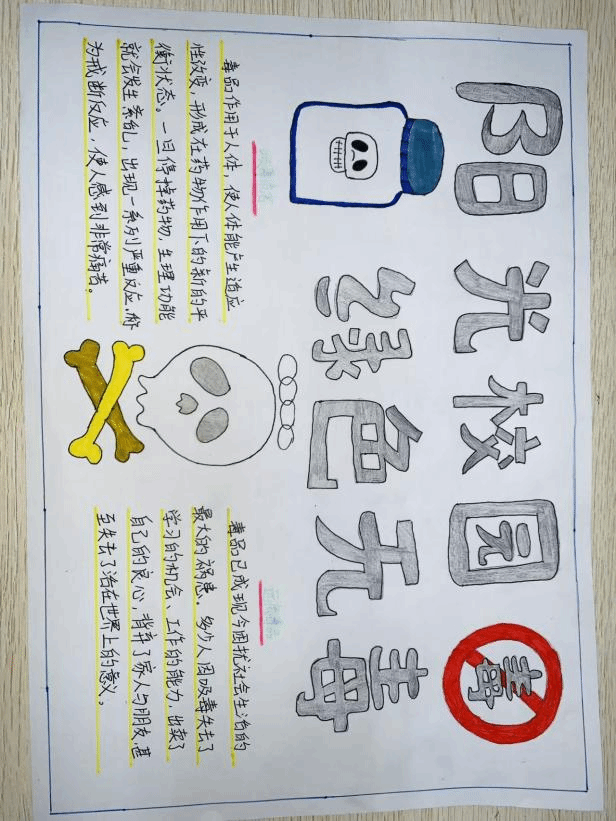 阳光校园
毒
绿色无毒
毒品作用于人体，使人体能产生适应
性改变，形成在药物作用下的新的平
衡状态。一旦停掉药物，生理功能
就会发生紊乱，出现一系列严重反应，称
为戒断反应，使人感到非常痛苦。
毒品已成现今困扰社会生活的
最大的祸患。多少人因吸毒失去了
学习的机会、工作的能力，出卖了
自己的良心，背弃了家人与朋友，甚
至失去了活在世界上的意义。